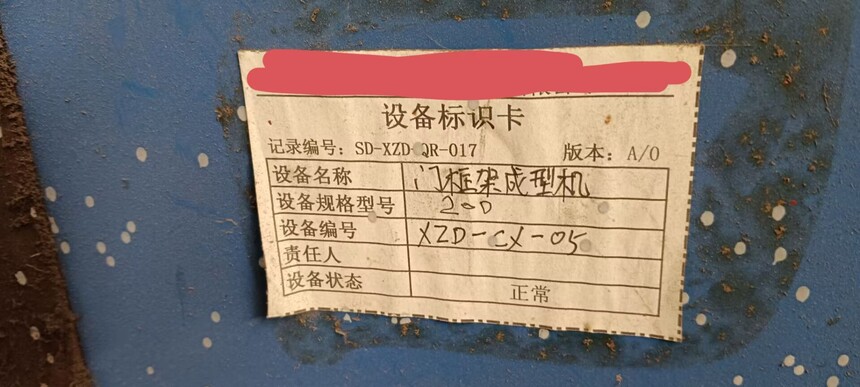 设备标识卡
记录编号：SD-XZD-QR-017 版本：A/0
设备名称 门框架成型机
设备规格型号 200
设备编号 XZD-CX-05
责任人
设备状态 正常